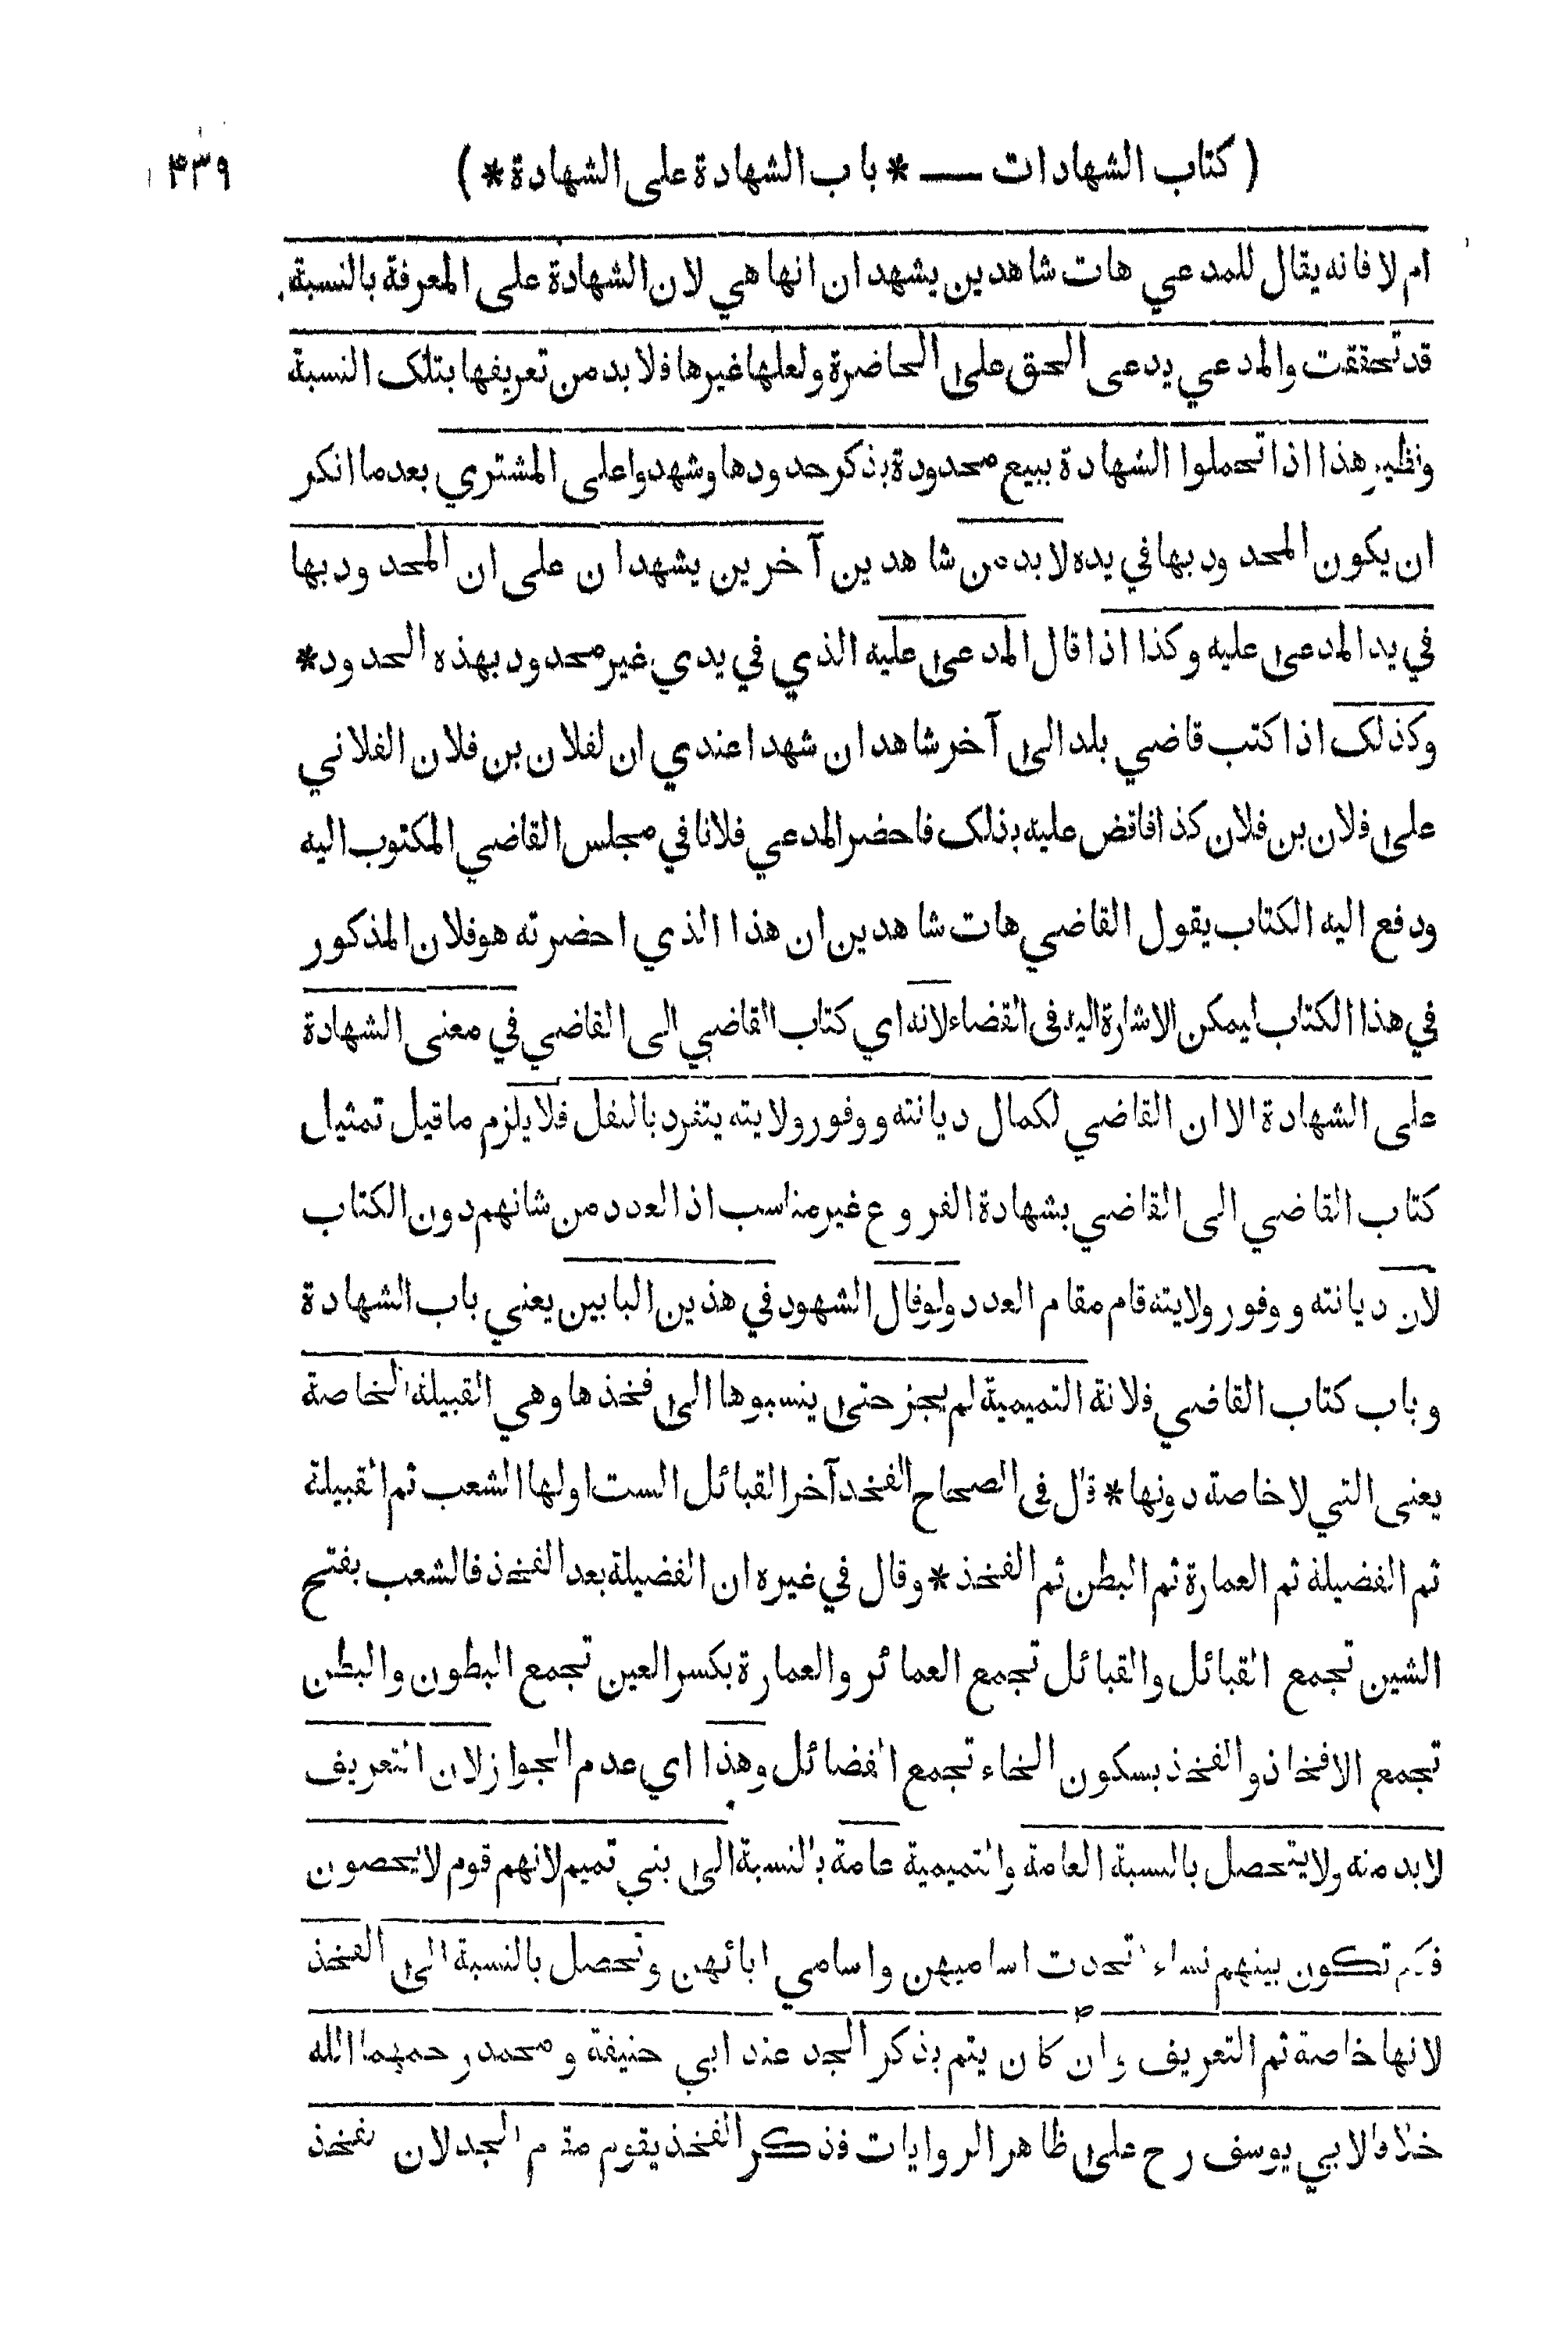 ( كتاب الشهادات — * باب الشهادة على الشهادة * ) ۴۳۹
ام لا فانه يقال للمدعي هات شاهدين يشهدان انها هي لان الشهادة على المعرفة بالنسبة
قد تحققت والمدعي يدعى الحق على الحاضرة ولعلها غيرها فلا بد من تعريفها بتلك النسبة
ونظير هذا اذا تحملوا الشهادة ببيع محدودة بذكر حدودها وشهدوا على المشتري بعد ما انكر
ان يكون المحدود بها في يده لا بد من شاهدين آخرين يشهدان على ان المحدود بها
في يد المدعى عليه وكذا اذا قال المدعى عليه الذي في يدي غير محدود بهذه الحدود *
وكذلك اذا كتب قاضي بلد الى آخر شاهدان شهدا عندي ان لفلان بن فلان الفلاني
على فلان بن فلان كذا فاقض عليه بذلك فاحضر المدعي فلانا في مجلس القاضي المكتوب اليه
ودفع اليه الكتاب يقول القاضي هات شاهدين ان هذا الذي احضرته هو فلان المذكور
في هذا الكتاب ليمكن الاشارة اليه فى القضاء لانه اي كتاب القاضي الى القاضي في معنى الشهادة
على الشهادة الا ان القاضي لكمال ديانته ووفور ولايته يتفرد بالنقل فلا يلزم ما قيل تمثيل
كتاب القاضي الى القاضي بشهادة الفروع غير مناسب اذ العدد من شانهم دون الكتاب
لان ديانته ووفور ولايته قام مقام العدد ولو قال الشهود في هذين البابين يعني باب الشهادة
وباب كتاب القاضي فلانة التميمية لم يجز حتى ينسبوها الى فخذها وهي القبيلة الخاصة
يعنى التي لا خاصة دونها * قال فى الصحاح الفخد آخر القبائل الست اولها الشعب ثم القبيلة
ثم الفضيلة ثم العمارة ثم البطن ثم الفخذ * وقال في غيره ان الفضيلة بعد الفخذ فالشعب بفتح
الشين تجمع القبائل والقبائل تجمع العمائر والعمارة بكسر العين تجمع البطون والبطن
تجمع الافخاذ والفخذ بسكون الخاء تجمع الفضائل وهذا اي عدم الجواز لان التعريف
لا بد منه ولا يتحصل بالنسبة العامة والتميمية عامة بالنسبة الى بني تميم لانهم قوم لا يحصون
فكم تكون بينهم نساء اتحدت اساميهن واسامي ابائهن وتحصل بالنسبة الى الفخذ
لانها خاصة ثم التعريف وان كان يتم بذكر الجد عند ابي حنيفة ومحمد رحمهما الله
خلافا لابي يوسف رح على ظاهر الروايات فذكر الفخذ يقوم مقام الجد لان الفخذ